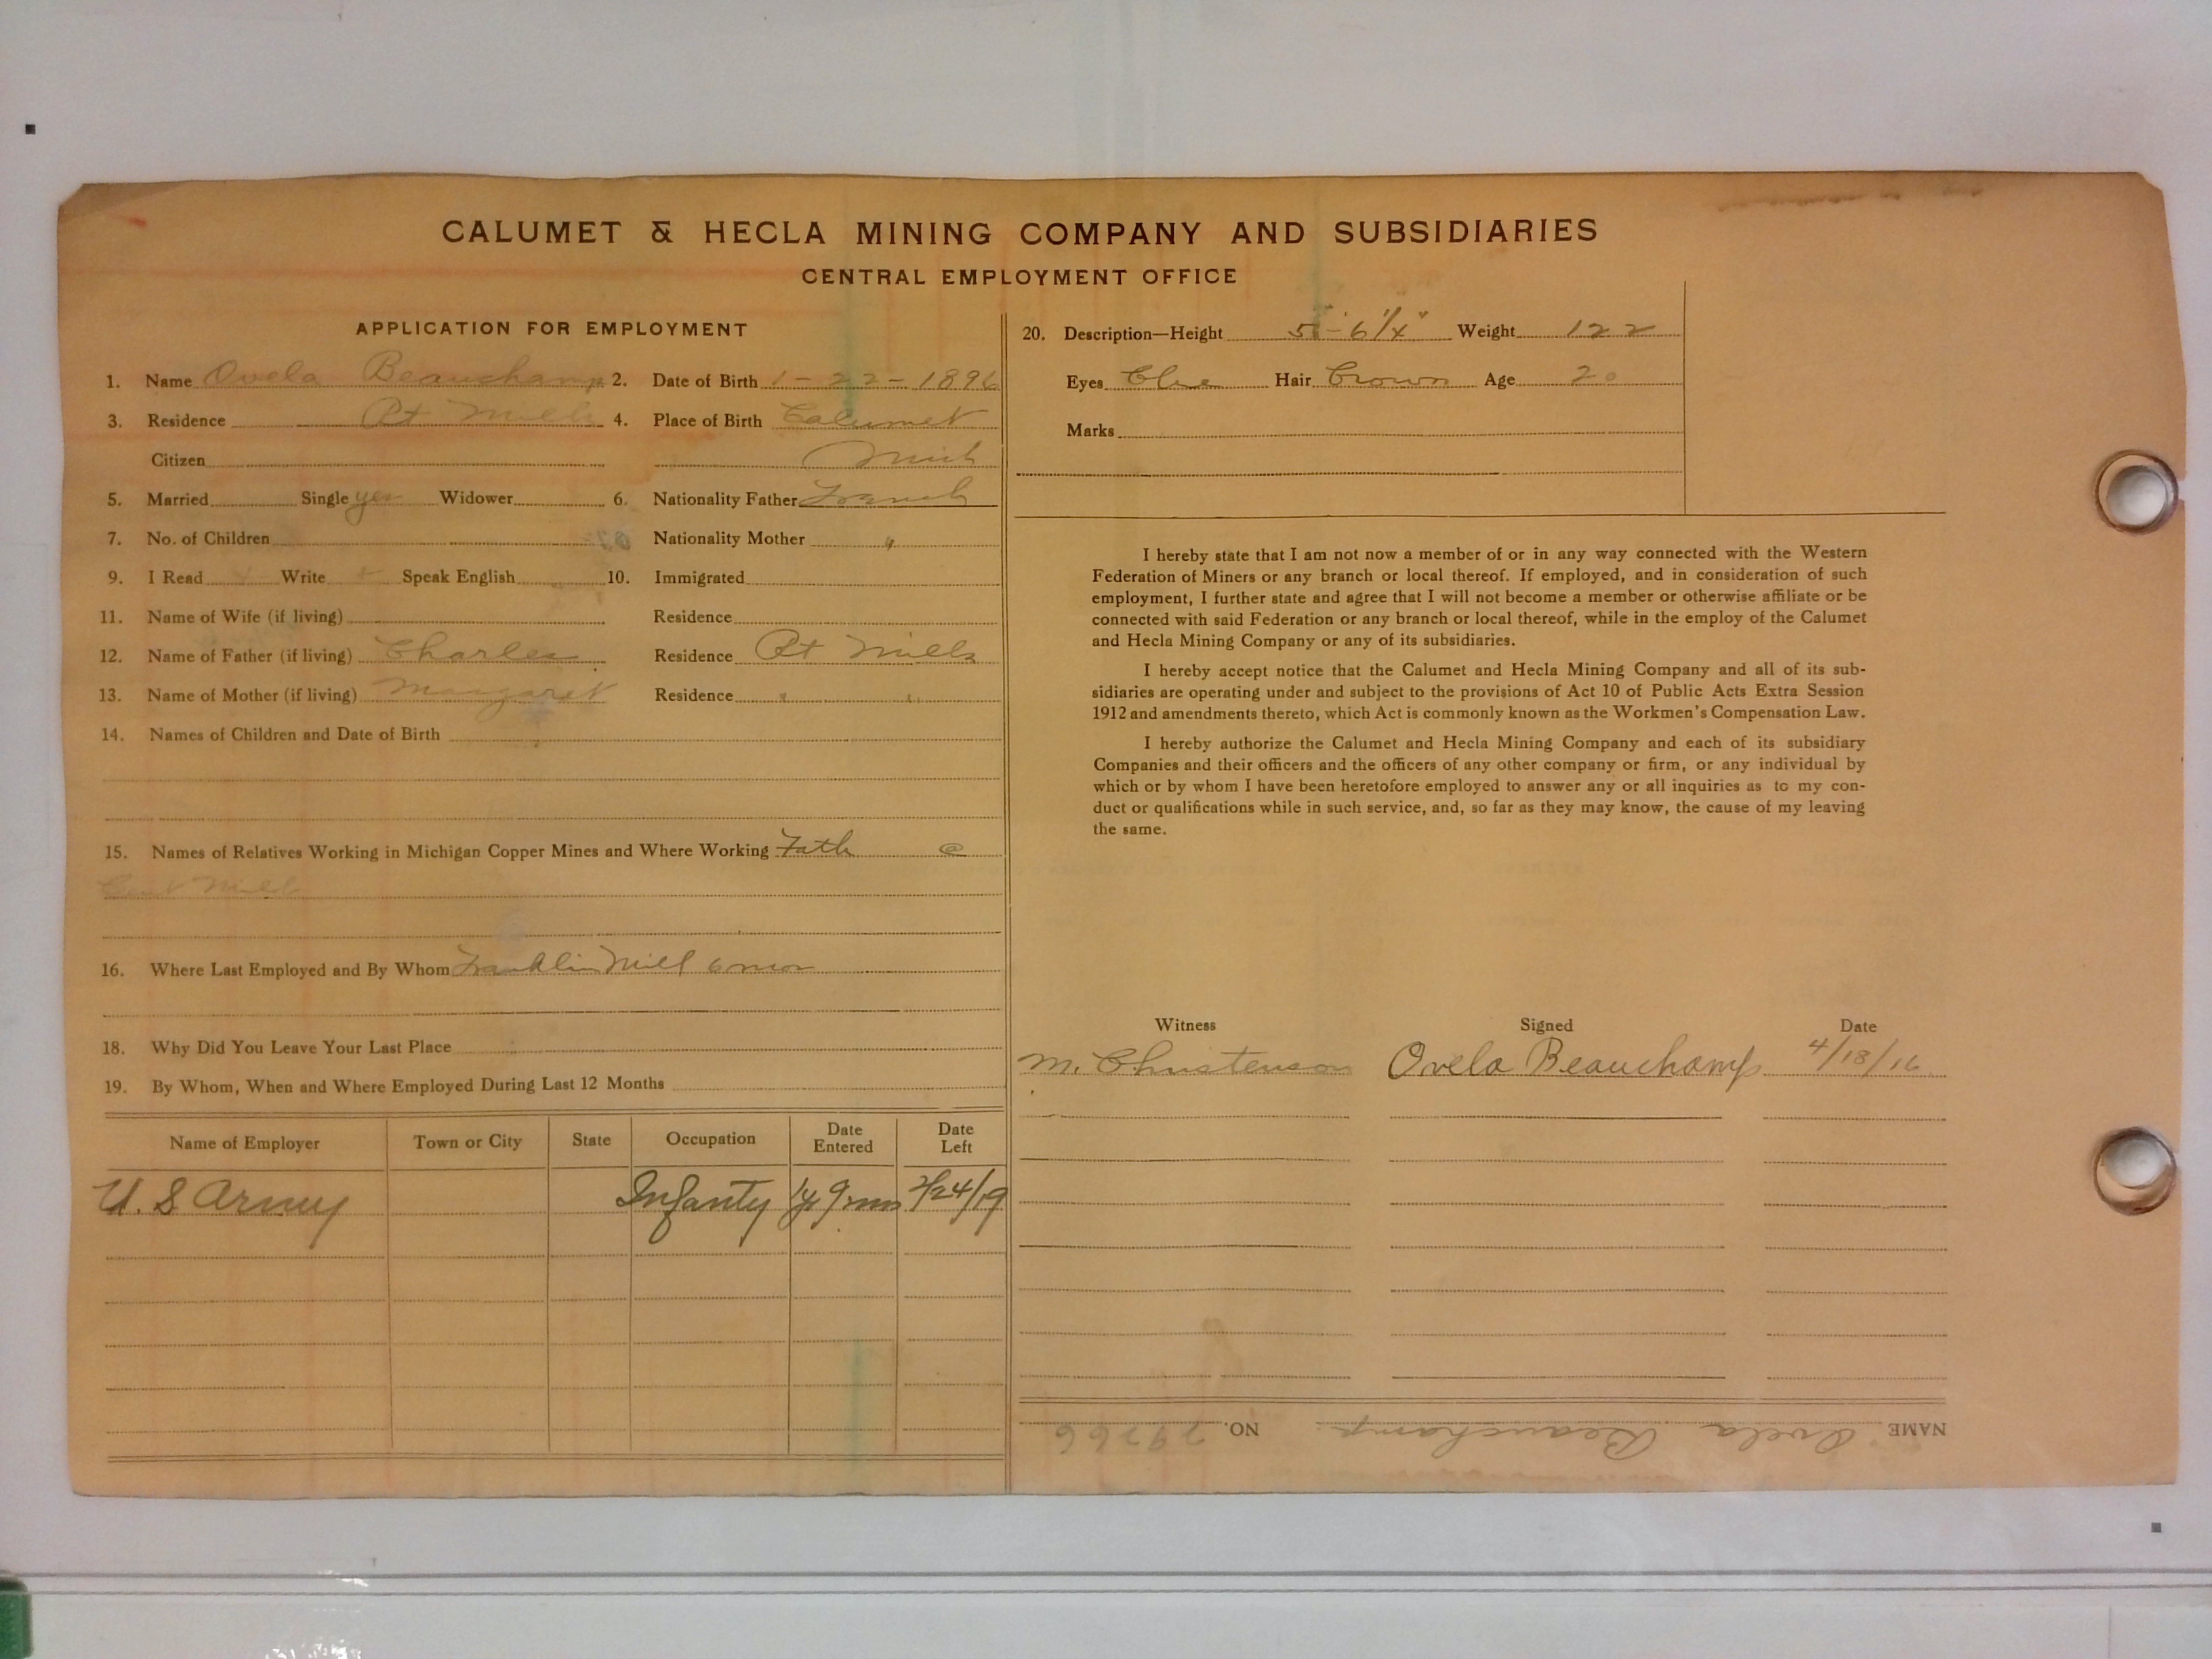 CALUMET & HECLA MINING COMPANY AND SUBSIDIARIES
CENTRAL EMPLOYMENT OFFICE
APPLICATION FOR EMPLOYMENT
1. Name Ovela Beauchamp 2. Date of Birth 1-22-1896
3. Residence Pt Mills 4. Place of Birth Calumet
Citizen Mich
5. Married Single yes Widower 6. Nationality Father French
7. No. of Children Nationality Mother "
9. I Read Write Speak English 10. Immigrated
11. Name of Wife (if living) Residence
12. Name of Father (if living) Charles Residence Pt Mills
13. Name of Mother (if living) Margaret Residence " "
14. Names of Children and Date of Birth
15. Names of Relatives Working in Michigan Copper Mines and Where Working Fath @
Cent Mill
16. Where Last Employed and By Whom Franklin Mill 6 mos
18. Why Did You Leave Your Last Place
19. By Whom, When and Where Employed During Last 12 Months
Name of Employer Town or City State Occupation Date Entered Date Left
U. S Army Infanty 1y 9 mos 2/24/19
20. Description—Height 5'-6 1/4" Weight 122
Eyes Blue Hair Brown Age 20
Marks
I hereby state that I am not now a member of or in any way connected with the Western
Federation of Miners or any branch or local thereof. If employed, and in consideration of such
employment, I further state and agree that I will not become a member or otherwise affiliate or be
connected with said Federation or any branch or local thereof, while in the employ of the Calumet
and Hecla Mining Company or any of its subsidiaries.
I hereby accept notice that the Calumet and Hecla Mining Company and all of its sub-
sidiaries are operating under and subject to the provisions of Act 10 of Public Acts Extra Session
1912 and amendments thereto, which Act is commonly known as the Workmen's Compensation Law.
I hereby authorize the Calumet and Hecla Mining Company and each of its subsidiary
Companies and their officers and the officers of any other company or firm, or any individual by
which or by whom I have been heretofore employed to answer any or all inquiries as to my con-
duct or qualifications while in such service, and, so far as they may know, the cause of my leaving
the same.
Witness Signed Date
M. Christenson Ovela Beauchamp 4/18/16
NAME Ovela Beauchamp NO. 29266